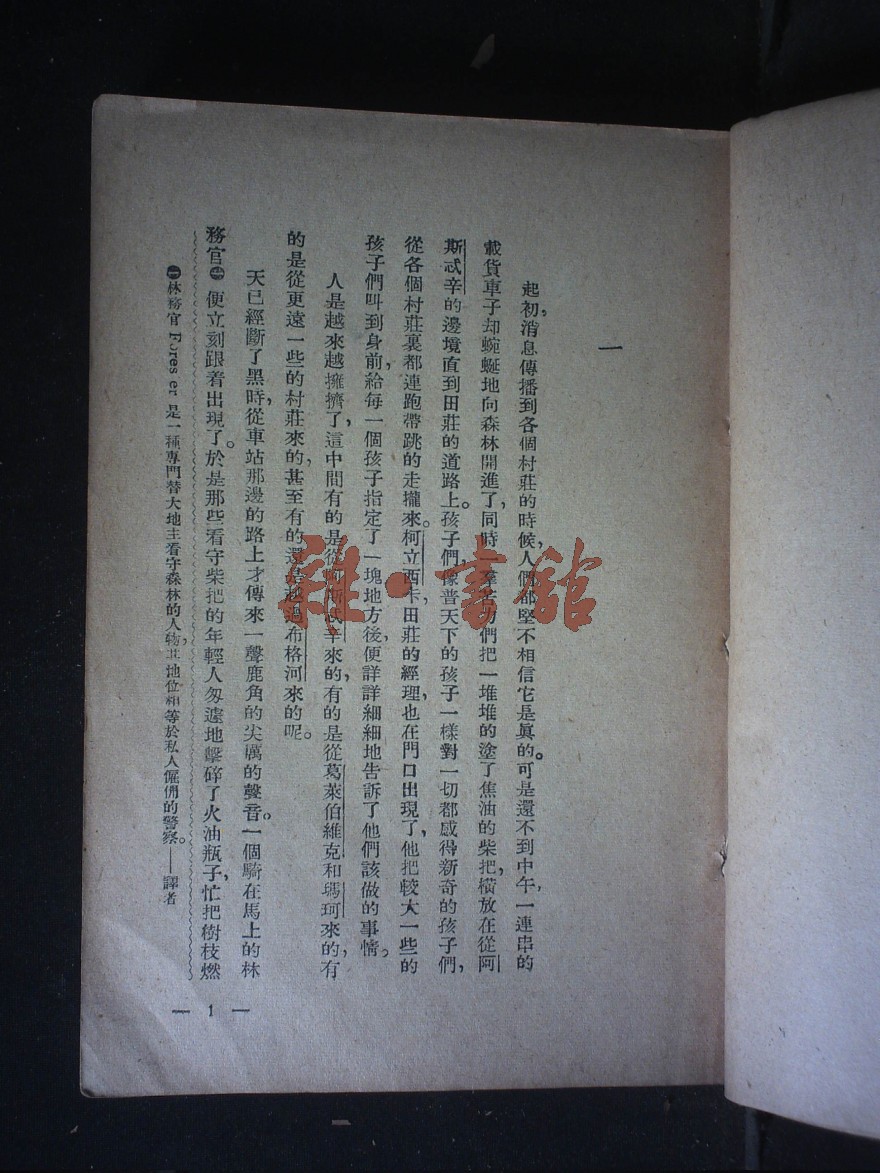 一
起初，消息傳播到各個村莊的時候，人們都堅不相信它是真的。可是還不到中午，一連串的
載貨車子却蜿蜒地向森林開進了，同時，羣若們把一堆堆的塗了焦油的柴把，橫放在從阿
斯忒辛的邊境直到田莊的道路上。孩子們，像普天下的孩子一樣對一切都感得新奇的孩子們，
從各個村莊裏都連跑帶跳的走攏來。柯立西卡田莊的經理，也在門口出現了，他把較大一些的
孩子們叫到身前，給每一個孩子指定了一塊地方後，便詳詳細細地告訴了他們該做的事情。
人是越來越擁擠了，這中間有的是從阿斯忒辛來的，有的是從葛萊伯維克和瑪珂來的，有
的是從更遠一些的村莊來的，甚至有的還是越過布格河來的呢。
天已經斷了黑時，從車站那邊的路上才傳來一聲鹿角的尖厲的聲音。一個騎在馬上的林
務官㊀便立刻跟着出現了。於是那些看守柴把的年輕人匆遽地擊碎了火油瓶子，忙把樹枝燃
㊀林務官 Fores er 是一種專門替大地主看守森林的人物，其地位相等於私人僱傭的警察。——譯者
— 1 —
雜·書館